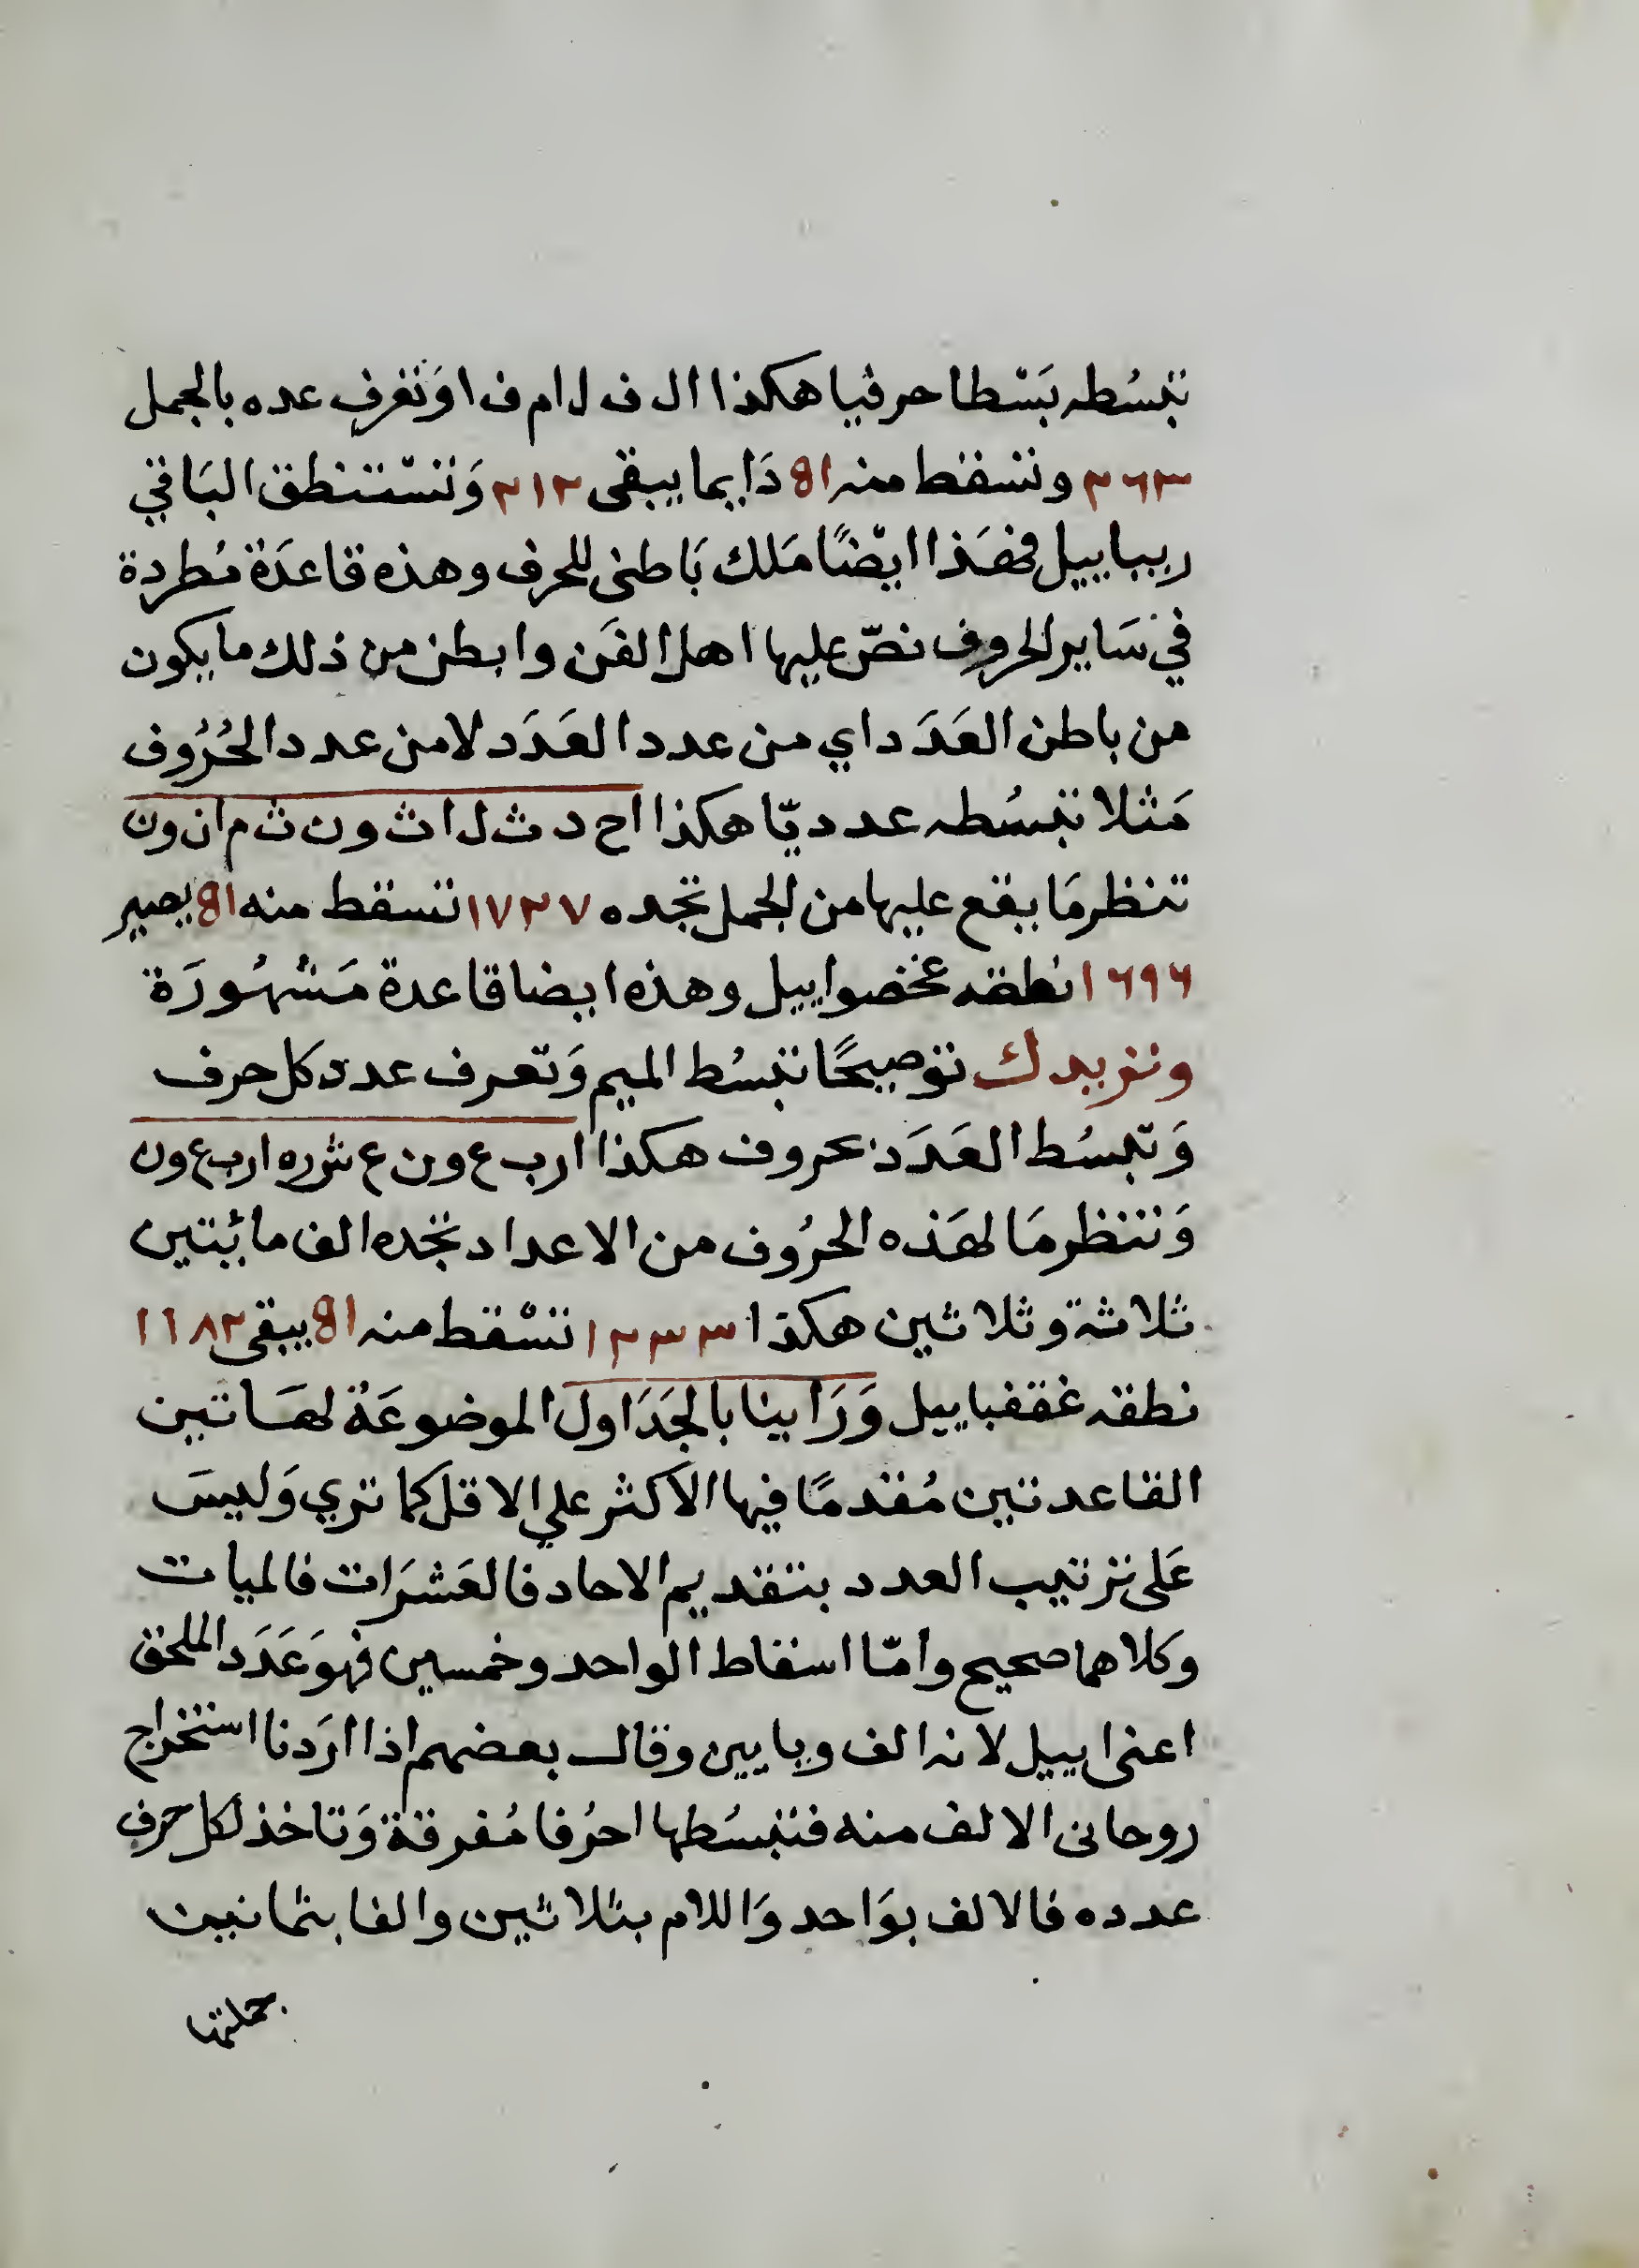 تبسُطه بَسْطا حرفيا هكذا ال ف ل ام ف ا وَتعرف عده بالجمل
٢٦٣ وتسقط منه ٥١ دَايما يبقى ٢١٢ وَتسْتنطق البَاقي
ريباييل فهَذا ايضًا مَلك بَاطنى للحرف وهذه قاعدَة مُطردة
في سَاير الحروف نصّ عليها اهل الفَن وابطن من ذلك ما يكون
من باطن العَدَد اي من عدد العَدَد لا من عدد الحُرُوف
مَثلا تبسُطه عدديّا هكذا اح د ث ل ا ث و ن ث م ا ن و ن
تنظر مَا يقع عليها من الجمل تجده ١٧٢٧ تسقط منه ٥١ يصير
١٦٩٦ نطقه غخصواييل وهذه ايضا قاعدة مَشهُورَة
ونزيدك توضيحًا تبسُط الميم وَتعرف عدد كل حرف
وَتبسُط العَدَد بحروف هكذا ار ب ع و ن ع ش ر ه ا ر ب ع و ن
وَتنظر مَا لهَذه الحرُوف من الاعداد تجده الف مائيتين
ثلاثة وثلاثين هكذا ١٢٣٣ تسْقط منه ٥١ يبقى ١١٨٢
نطقه غقفباييل وَرَاينا بالجَدَاول الموضوعَة لهَاتين
القاعدتين مُقدمًا فيها الاكثر علي الاقل كما تري وَليسَ
عَلى ترتيب العدد بتقديم الاحاد فالعَشرَات فالميات
وكلاهما صحيح وامّا اسقاط الواحد وخمسين فهوَ عَدَد الملحق
اعنى اييل لانه الف وبايين وقال بعضهم اذا ارَدنا استخراج
روحانى الالف منه فتبسُطها احرُفا مُفرقة وَتاخذ لكل حرف
عدده فالالف بوَاحد وَاللام بثلاثين والفا بثمانين
جملتها